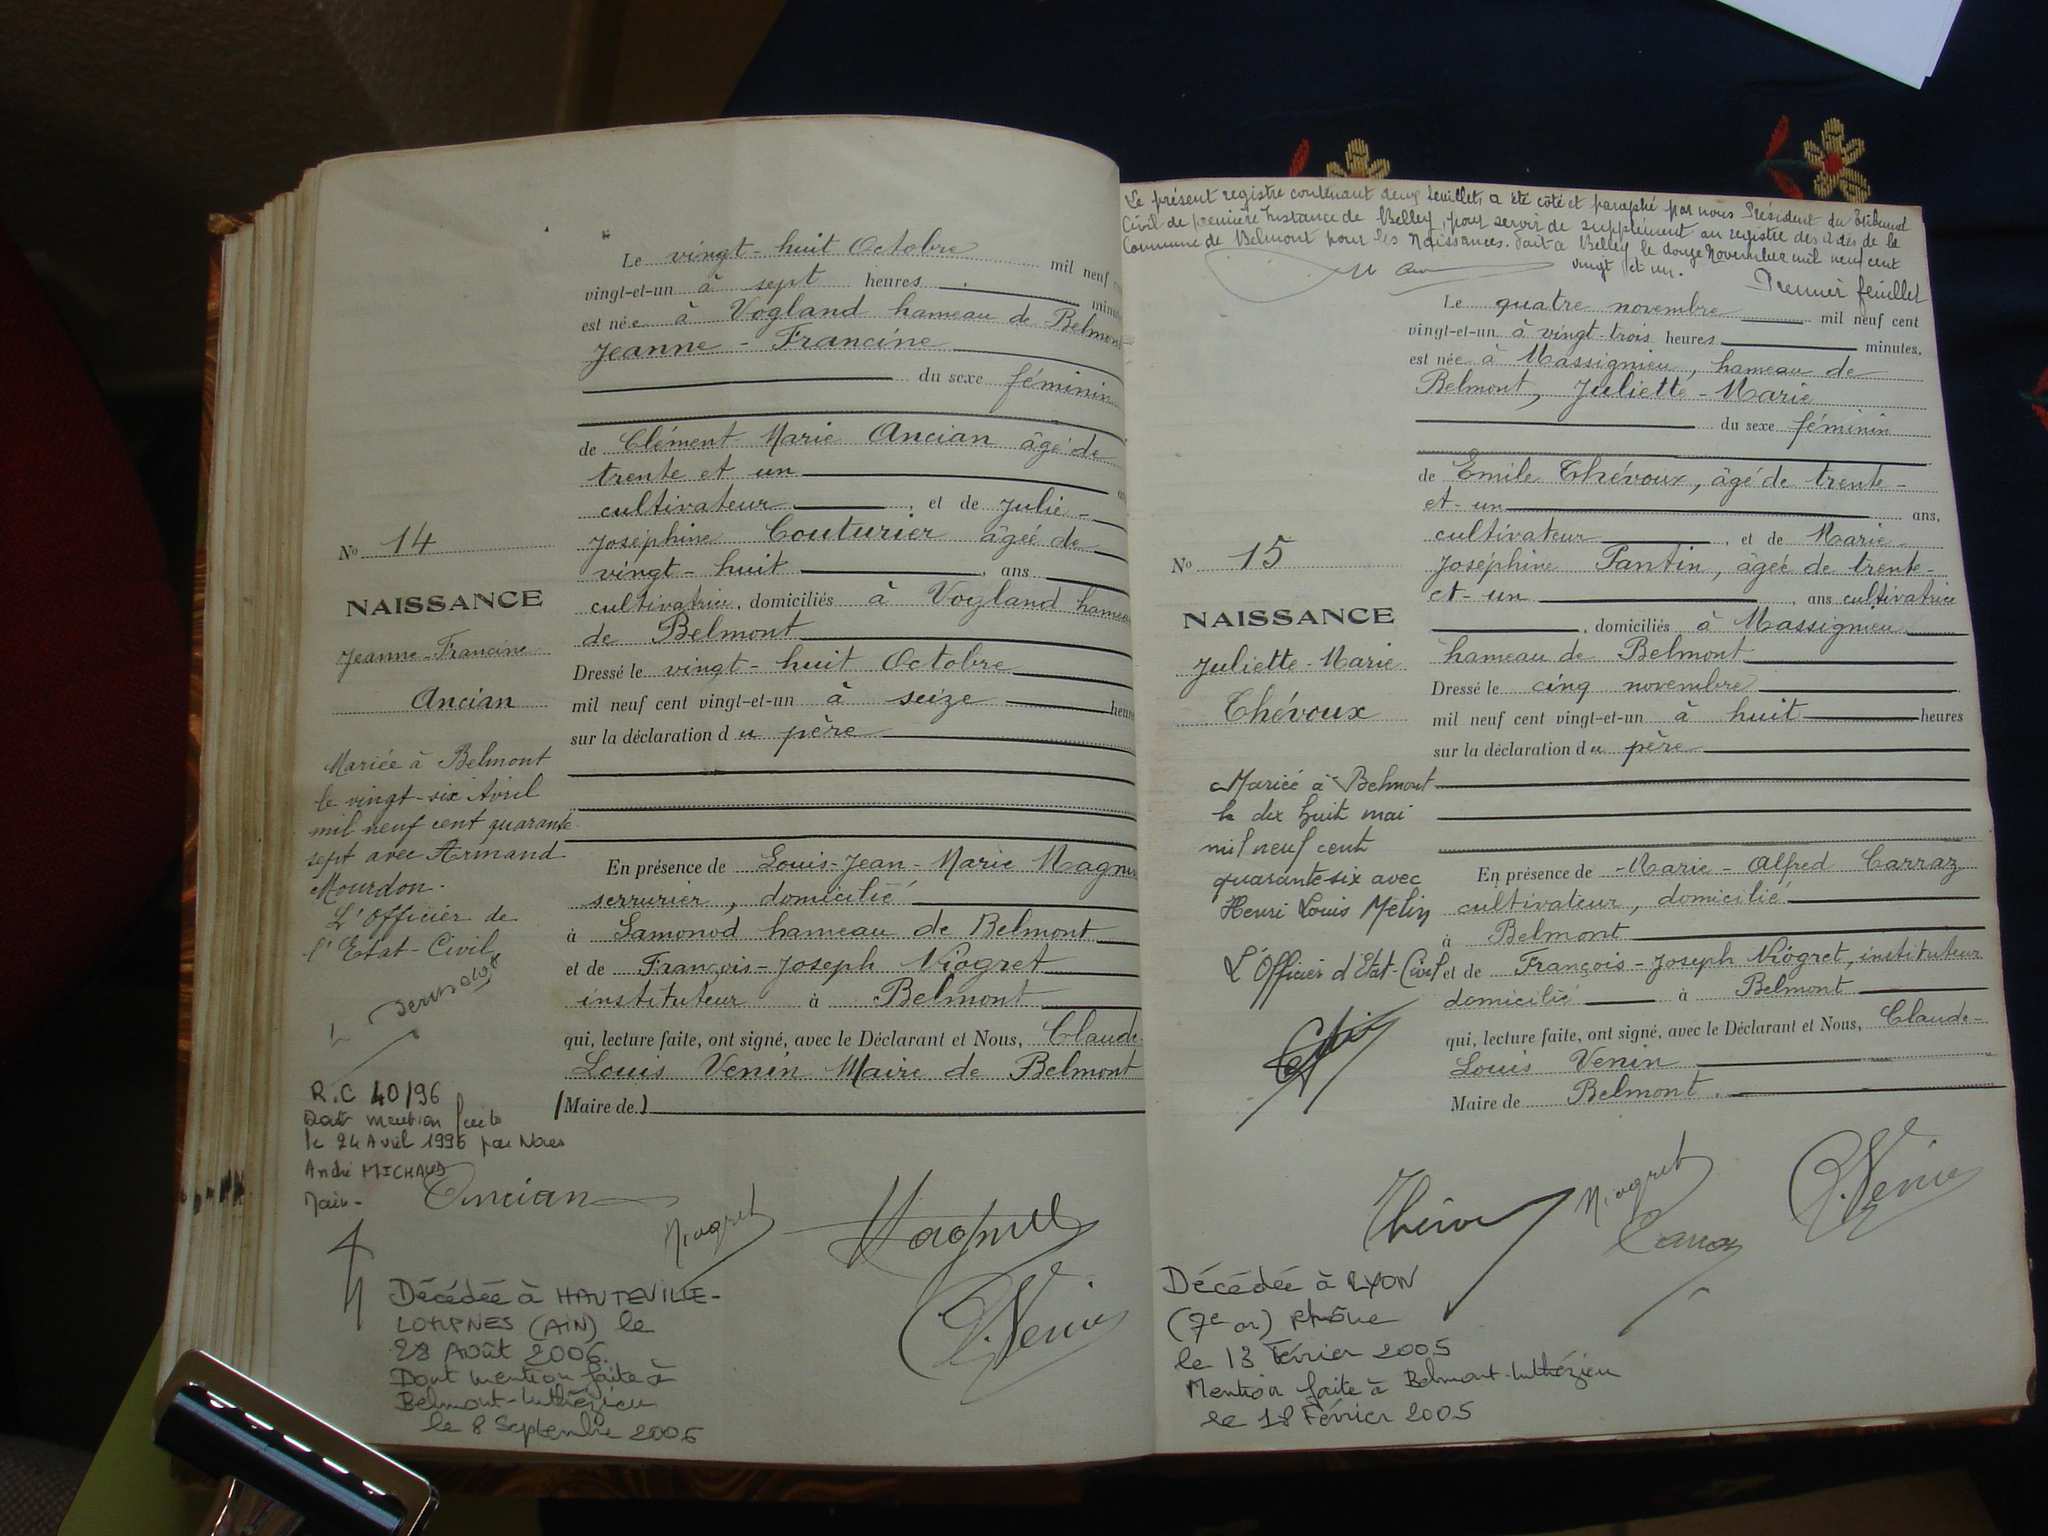 Le vingt-huit Octobre mil neuf
vingt-et-un à sept heures minutes
est née à Vogland hameau de Belmont
Jeanne-Francine
du sexe féminin
de Clément Marie Ancian âgé de
trente et un
cultivateur, et de Julie-
Joséphine Couturier âgée de
vingt-huit, ans
cultivatrice, domiciliés à Vogland hameau
de Belmont
Dressé le vingt-huit Octobre
mil neuf cent vingt-et-un à seize heures
sur la déclaration du père
En présence de Louis-Jean-Marie
serrurier, domicilié
à Samonod hameau de Belmont
et de François-Joseph Viogret
instituteur à Belmont
qui, lecture faite, ont signé, avec le Déclarant et Nous, Claude-
Louis Venin Maire de Belmont
(Maire de)
No 14
NAISSANCE
Jeanne-Francine
Ancian
Mariée à Belmont
le vingt-six Avril
mil neuf cent quarante
sept avec Armand
Mourdon.
L'Officier de
l'Etat-Civil
R.C 40/96
Dont mention faite
le 24 Avril 1996 par Nous
André MICHAUD
Maire-
Ancian
Viogret
C. Venin
Décédée à HAUTEVILLE-
LOMPNES (AIN) le
28 Août 2006.
Dont mention faite à
Belmont-Luthézieu
le 8 Septembre 2006
Le présent registre contenant deux feuillets, a été coté et paraphé par nous Président du Tribunal
Civil de première Instance de Belley, pour servir de supplément au registre des actes de la
Commune de Belmont pour les Naissances. Fait à Belley le douze Novembre mil neuf cent
vingt et un.
Premier feuillet
Le quatre novembre mil neuf cent
vingt-et-un à vingt-trois heures minutes,
est née à Massignieu, hameau de
Belmont, Juliette-Marie
du sexe féminin
de Emile Thévoux, âgé de trente-
et-un ans,
cultivateur, et de Marie-
Joséphine Pantin, âgée de trente-
et-un, ans cultivatrice
, domiciliés à Massignieu
hameau de Belmont
Dressé le cinq novembre
mil neuf cent vingt-et-un à huit heures
sur la déclaration du père
En présence de Marie-Alfred Carraz
cultivateur, domicilié
à Belmont
et de François-Joseph Viogret, instituteur
domicilié à Belmont
qui, lecture faite, ont signé, avec le Déclarant et Nous, Claude-
Louis Venin
Maire de Belmont.
No 15
NAISSANCE
Juliette-Marie
Thévoux
Mariée à Belmont
le dix huit mai
mil neuf cent
quarante-six avec
Henri Louis
L'Officier d'Etat-Civil
Viogret
Carraz
C. Venin
Décédée à LYON
(7e ar) Rhône
le 13 Février 2005
Mention faite à Belmont-Luthézieu
le 18 Février 2005